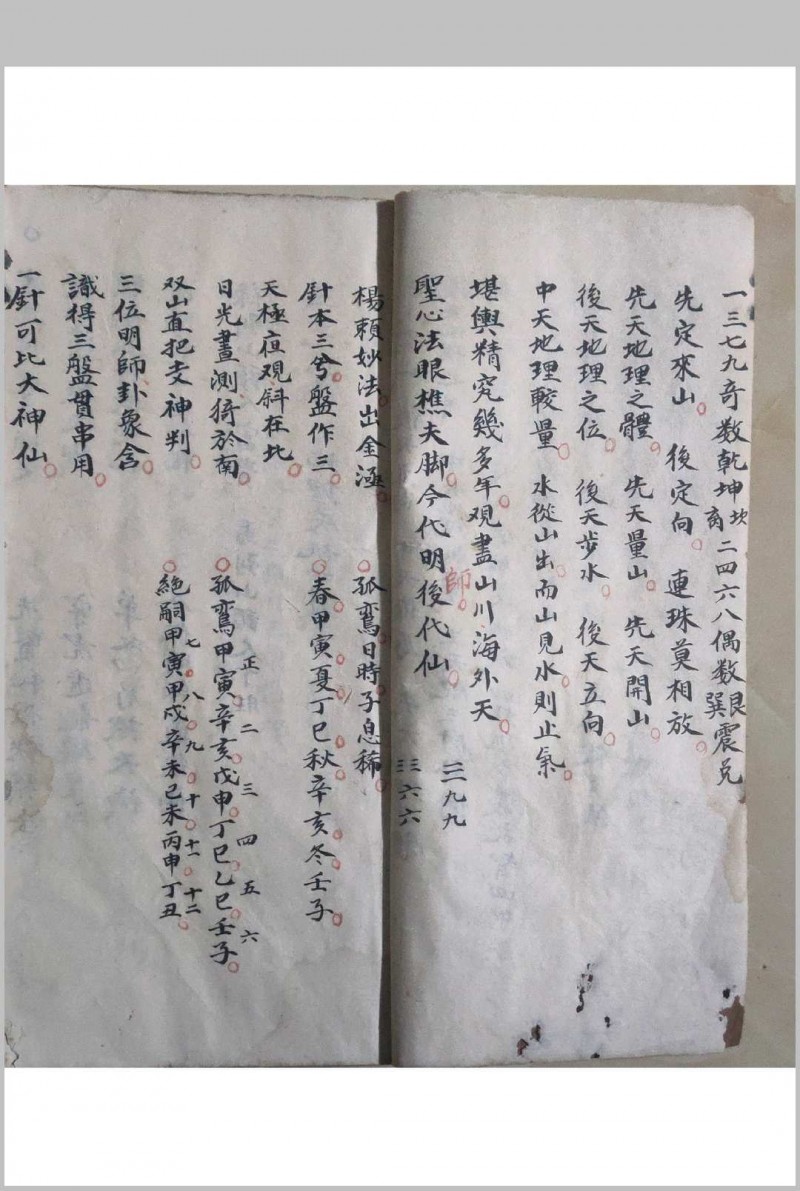 一三七九奇数乾坤坎离二四六八偶数艮巽震兑
先定來山 後定向 連珠莫相放
先天地理之體 先天量山 先天開山
後天地理之位 後天步水 後天立向
中天地理較量 水從山出而山見水則止氣
堪輿精究幾多年观盡山川海外天
聖心法眼樵夫脚今代明師後代仙
三九九
三六六
楊賴妙法出金涵 孤鸞日時子息稀
針本三兮盤作三 春甲寅夏丁巳秋辛亥冬壬子
天極夜观斜在北
日光晝測猗於南 孤鸞甲寅辛亥戊申丁巳乙巳壬子
正二三四五六
双山直把支神判 絕嗣甲寅甲戌辛未己未丙申丁丑
七八九十十一十二
三位明師卦象含
識得三盤貫串用
一針可比大神仙